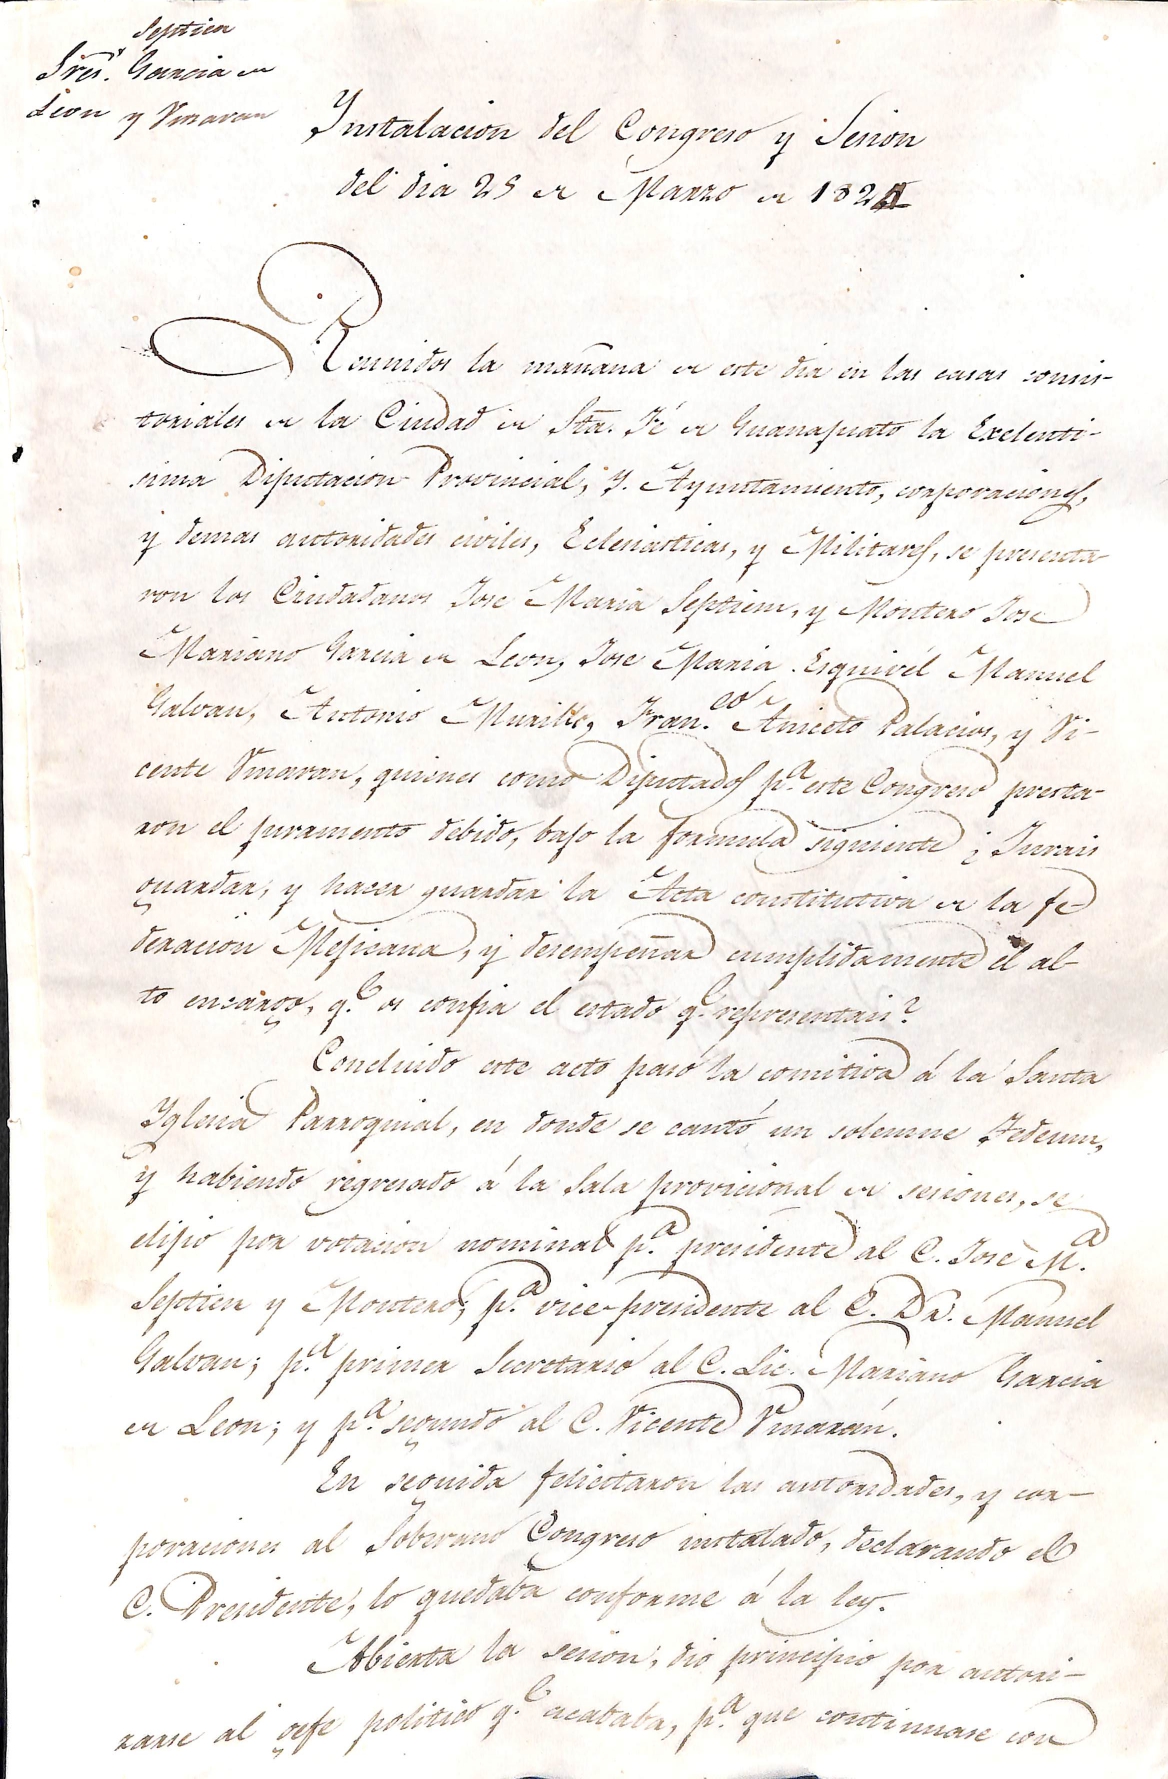 Septien
Sres. Garcia de
Leon y Umaran
Instalacion del Congreso y Sesion
del dia 25 de Marzo de 1824
Reunidos la mañana de este dia en las casas consis-
toriales de la Ciudad de Sta. Fé de Guanajuato la Exelenti-
sima Diputacion Provincial, Y. Ayuntamiento, corporaciones,
y demas autoridades civiles, Eclesiasticas, y Militares, se presenta
ron los Ciudadanos Jose Maria Septiem, y Montero Jose
Mariano Garcia de Leon, Jose Maria Esquivél Manuel
Galvan, Antonio Murillo, Fran.co Aniceto Palacios, y Vi-
cente Umaran, quienes como Diputados p.a este Congreso presta-
ron el juramento debido, bajo la formula siguiente ¿Jurais
guardar, y hacer guardar la Acta constitutiva de la fe
deracion Mejicana, y desempeñar cumplidamente el al-
to encargo, q.e os confia el estado q.e representais?
Concluido este acto pasó la comitiva á la Santa
Yglesia Parroquial, en donde se cantó un solemne Tedeum,
y habiendo regresado á la Sala provicional de sesiones, se
elijio por votacion nominal p.a presidente al C. Jose M.a
Septien y Montero; p.a vice-presidente al C. Dr. Manuel
Galvan; p.a primer Secretario al C. Lic. Mariano Garcia
de Leon; y p.a segundo al C. Vicente Umarán.
En seguida felicitaron las autoridades, y cor-
poraciones al Soberano Congreso instalado, declarando el
C. Presidente, lo quedaba conforme á la ley.
Abierta la sesion, dio principio por autori-
zarse al gefe politico q.e acababa, p.a que continuase con